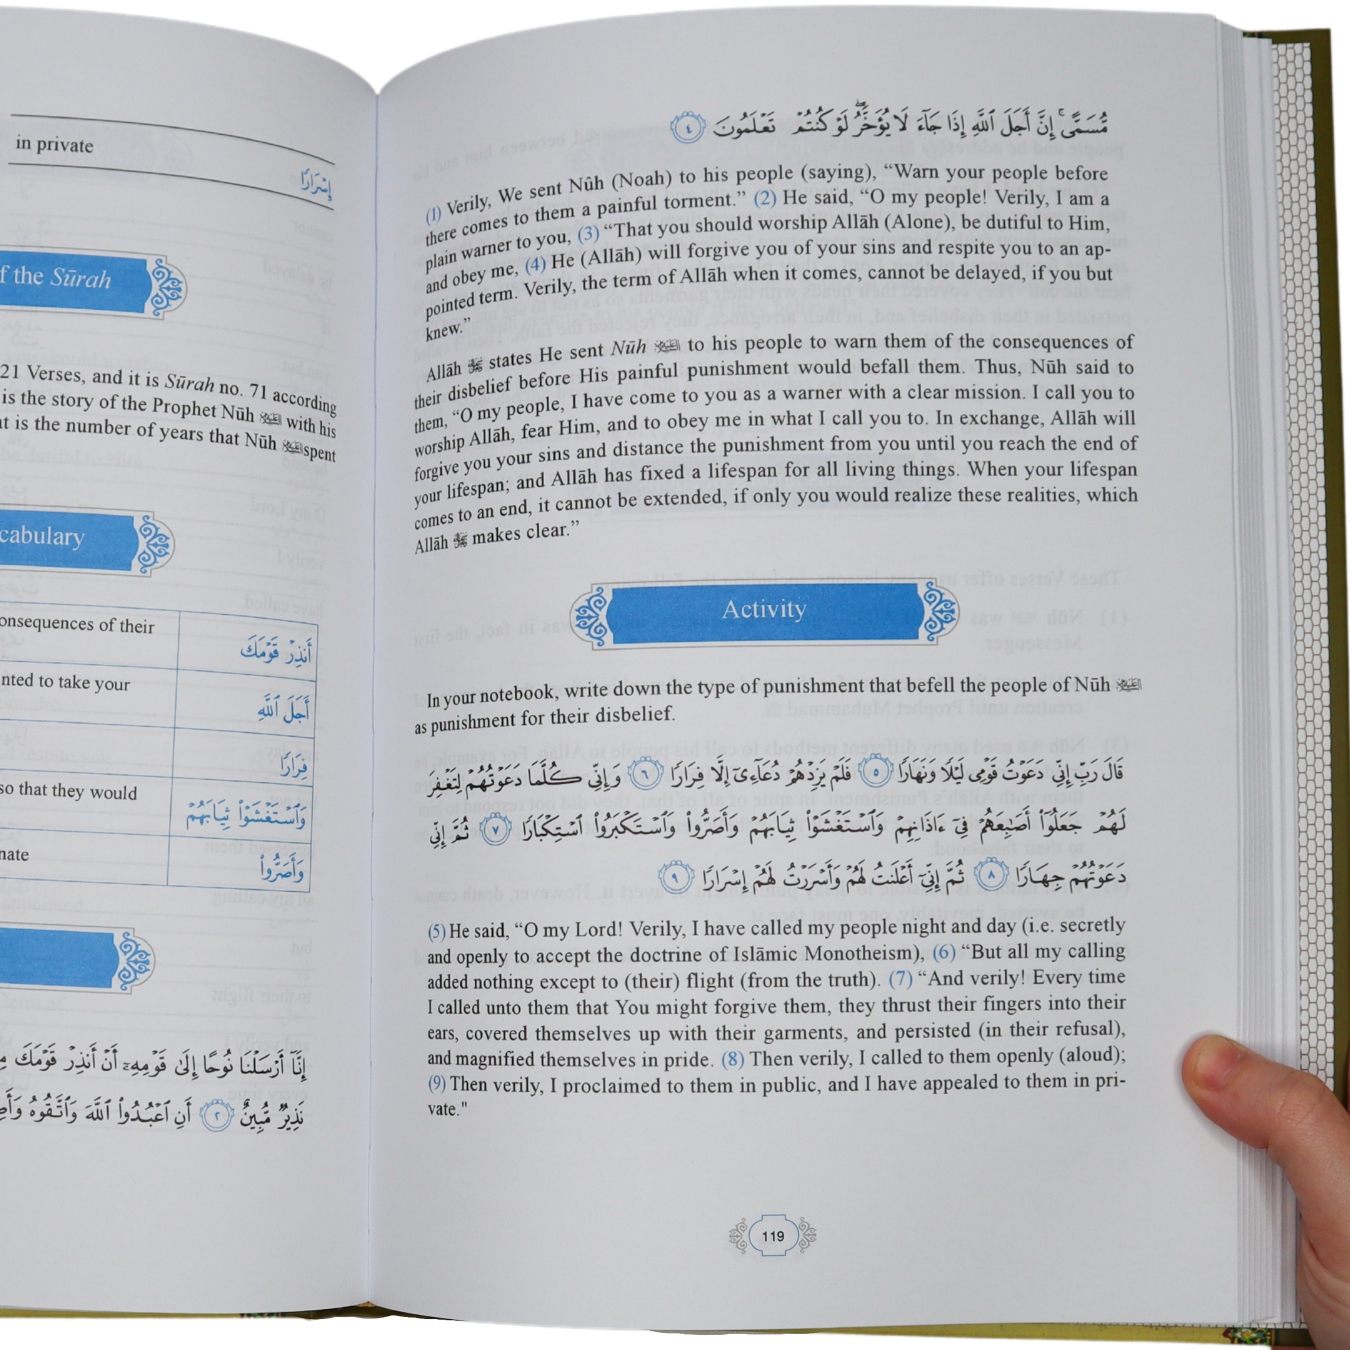 in private
إِسْرَارًا
f the Sūrah
21 Verses, and it is Sūrah no. 71 according
is the story of the Prophet Nūh ﷺ with his
t is the number of years that Nūh ﷺ spent
cabulary
onsequences of their
أَنذِرْ قَوْمَكَ
nted to take your
أَجَلَ ٱللَّهِ
فِرَارًا
so that they would
وَٱسْتَغْشَوْا۟ ثِيَابَهُمْ
nate
وَأَصَرُّوا۟
إِنَّآ أَرْسَلْنَا نُوحًا إِلَىٰ قَوْمِهِۦٓ أَنْ أَنذِرْ قَوْمَكَ
نَذِيرٌ مُّبِينٌ ٢ أَنِ ٱعْبُدُوا۟ ٱللَّهَ وَٱتَّقُوهُ
مُّسَمًّى ۚ إِنَّ أَجَلَ ٱللَّهِ إِذَا جَآءَ لَا يُؤَخَّرُ ۖ لَوْ كُنتُمْ تَعْلَمُونَ ٤
(1) Verily, We sent Nûh (Noah) to his people (saying), “Warn your people before
there comes to them a painful torment.” (2) He said, “O my people! Verily, I am a
plain warner to you, (3) “That you should worship Allāh (Alone), be dutiful to Him,
and obey me, (4) He (Allāh) will forgive you of your sins and respite you to an ap-
pointed term. Verily, the term of Allāh when it comes, cannot be delayed, if you but
knew.”
Allāh ﷻ states He sent Nūh ﷺ to his people to warn them of the consequences of
their disbelief before His painful punishment would befall them. Thus, Nūh said to
them, “O my people, I have come to you as a warner with a clear mission. I call you to
worship Allāh, fear Him, and to obey me in what I call you to. In exchange, Allāh will
forgive you your sins and distance the punishment from you until you reach the end of
your lifespan; and Allāh has fixed a lifespan for all living things. When your lifespan
comes to an end, it cannot be extended, if only you would realize these realities, which
Allāh ﷻ makes clear.”
Activity
In your notebook, write down the type of punishment that befell the people of Nūh ﷺ
as punishment for their disbelief.
قَالَ رَبِّ إِنِّى دَعَوْتُ قَوْمِى لَيْلًا وَنَهَارًا ٥ فَلَمْ يَزِدْهُمْ دُعَآءِىٓ إِلَّا فِرَارًا ٦ وَإِنِّى كُلَّمَا دَعَوْتُهُمْ لِتَغْفِرَ
لَهُمْ جَعَلُوٓا۟ أَصَٰبِعَهُمْ فِىٓ ءَاذَانِهِمْ وَٱسْتَغْشَوْا۟ ثِيَابَهُمْ وَأَصَرُّوا۟ وَٱسْتَكْبَرُوا۟ ٱسْتِكْبَارًا ٧ ثُمَّ إِنِّى
دَعَوْتُهُمْ جِهَارًا ٨ ثُمَّ إِنِّىٓ أَعْلَنتُ لَهُمْ وَأَسْرَرْتُ لَهُمْ إِسْرَارًا ٩
(5) He said, “O my Lord! Verily, I have called my people night and day (i.e. secretly
and openly to accept the doctrine of Islāmic Monotheism), (6) “But all my calling
added nothing except to (their) flight (from the truth). (7) “And verily! Every time
I called unto them that You might forgive them, they thrust their fingers into their
ears, covered themselves up with their garments, and persisted (in their refusal),
and magnified themselves in pride. (8) Then verily, I called to them openly (aloud);
(9) Then verily, I proclaimed to them in public, and I have appealed to them in pri-
vate."
119